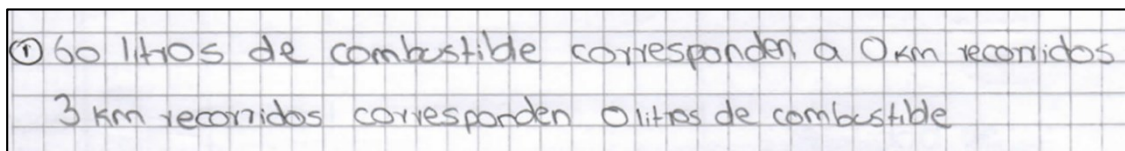 ① 60 litros de combustible corresponden a 0 km recorridos
3 km recorridos corresponden 0 litros de combustible